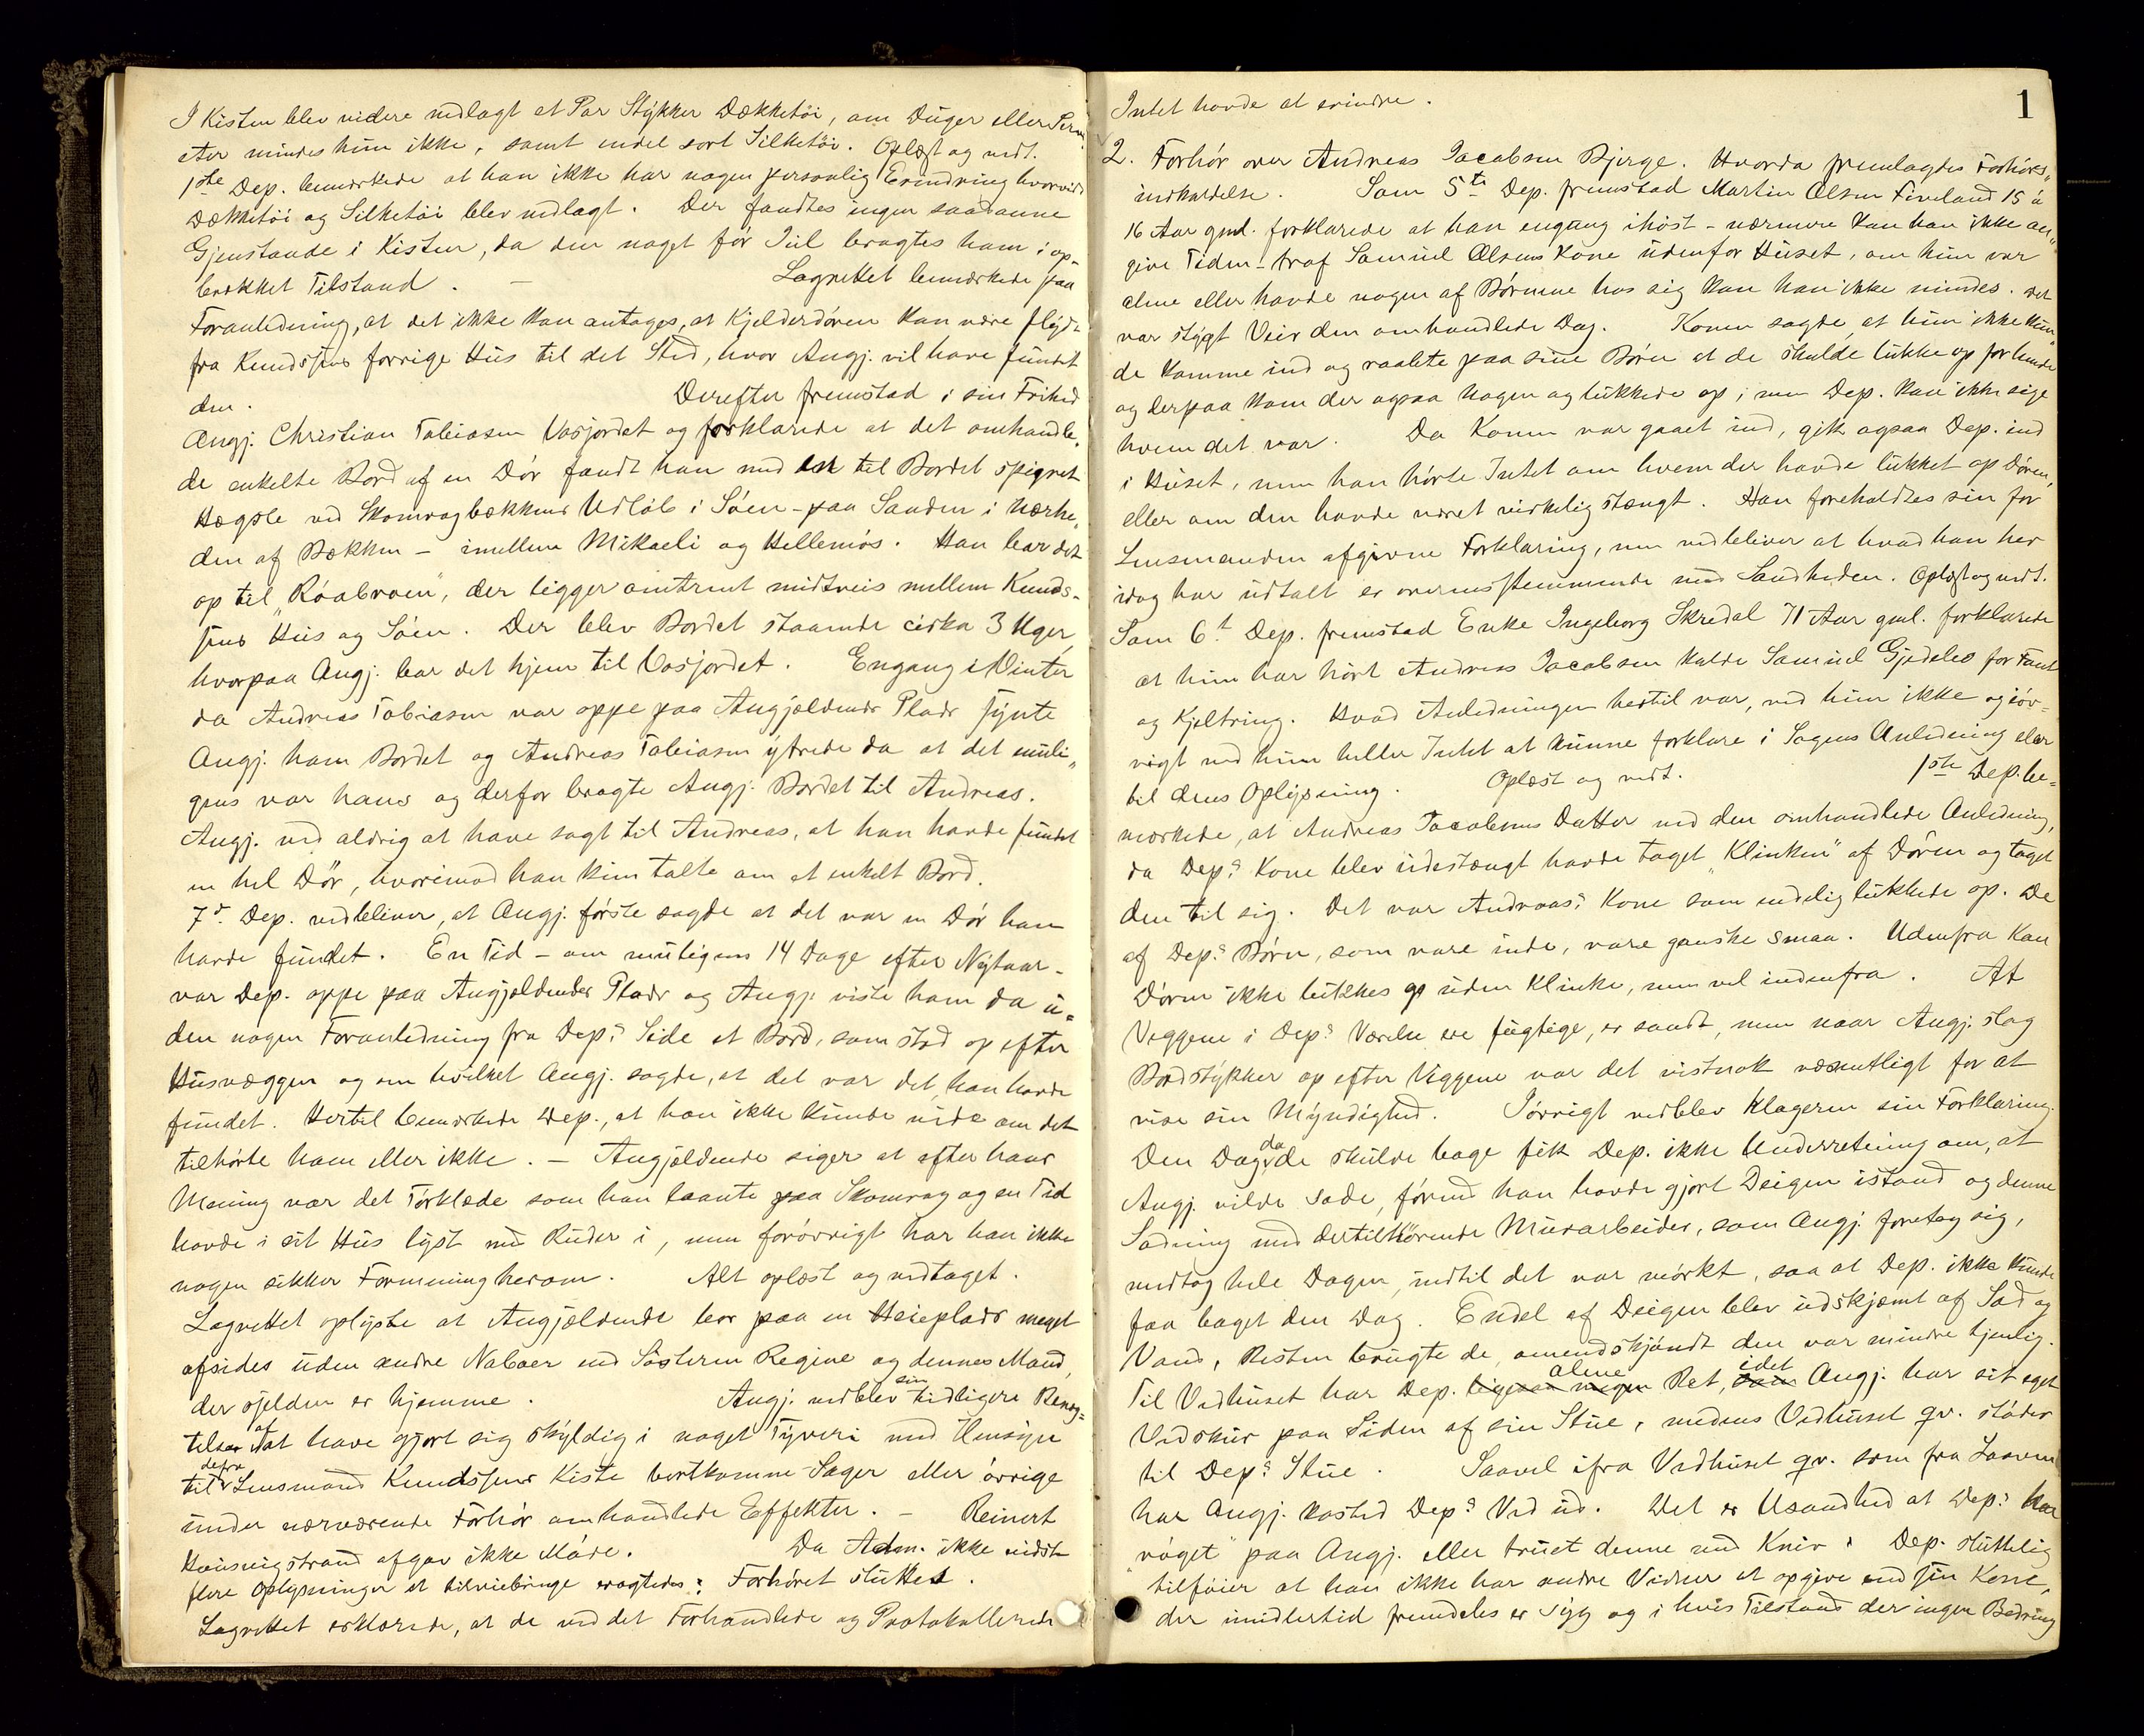 I Kisten blev videre nedlagt et Par Stykker Dækketøi, om Duger eller Servi
etter mindes hun ikke, samt endel sort Silketøi. Oplæst og vedt.
1ste Dep. bemærkede at han ikke har nogen personlig Erindring hvorvidt
Dækketøi og Silketøi blev nedlagt. Der fandtes ingen saadanne
Gjenstande i Kisten, da den noget før Jul bragtes ham i op-
brækket Tilstand. — Lagrettet bemærkede paa
Foranledning, at det ikke kan antages, at Kjelderdøren kan være flydt
fra Kundsens forrige Hus til det Sted, hvor Angj. vil have fundet
den. Derefter fremstod i sin Frihed
Angj. Christian Tobiasen Vasjordet og forklarede at det omhandle„
de enkelte Bord af en Dør fandt han med en til Bordet spigret
Hægsle ved Skomragbækkens Udløb i Søen - paa Sanden i Nærhe„
den af Bækken - imellem Mikaeli og Hellemös. Han bar det
op til „Röabroen", der ligger omtrent midtveis mellem Kunds-
sens Hus og Søen. Der blev Bordet staaende cirka 3 Uger,
hvorpaa Angj. bar det hjem til Vasjordet. Engang i Vinter
da Andreas Tobiasen var oppe paa Angjældendes Plads synte
Angj. ham Bordet og Andreas Tobiasen ytrede da at det muli„
gens var hans og derfor bragte Angj. Bordet til Andreas.
Angj. ved aldrig at have sagt til Andreas, at han havde fundet
en hel Dør, hvorimod han kun talte om et enkelt Bord.
7de Dep. vedbliver, at Angj. først sagde at det var en Dør han
havde fundet. En Tid - om muligens 14 Dage efter Nytaar -
var Dep. oppe paa Angjældendes Plads og Angj. viste ham da u=
den nogen Foranledning fra Dep.s Side et Bord, som stod op efter
Husvæggen og om hvilket Angj. sagde, at det var det, han havde
fundet. Hertil bemærkede Dep., at han ikke kunde vide om det
tilhørte ham eller ikke. — Angjældende siger at efter hans
Mening var det Tørklæde som han laante paa Skomrag og en Tid
havde i sit Hus lyst med Ruder i, men forøvrigt har han ikke
nogen sikker Formening herom. Alt oplæst og vedtaget.
Lagrettet oplyste at Angjældende bor paa en Heieplads meget
afsides uden andre Naboer end Søsteren Regine og dennes Mand,
der sjelden er hjemme. Angj. vedblev sin tidligere Benæg=
telse af at have gjort sig skyldig i noget Tyveri med Hensyn
til de fra Lensmand Kundssens Kiste bortkomne Sager eller øvrige
under nærværende Forhør omhandlede Effekter. — Reinert
Hausvigstrand afgav ikke Møde. Da Adm. ikke vidste
flere Oplysninger at tilveiebringe eragtedes: Forhøret sluttet.
Lagrettet erklærede, at de ved det Forhandlede og Protokollerede

1
Intet havde at erindre.
2. Forhør over Andreas Jacobsen Bjerge. Hvorda fremlagdes Forhørs„
indkaldelse. Som 5te Dep. fremstod Martin Olsen Fiveland 15 à
16 Aar gml. forklarede at han engang ihøst - nærmere kan han ikke an„
give Tiden - traf Samuel Olsens Kone udenfor Huset, om hun var
alene eller havde nogen af Børnene hos sig kan han ikke mindes. Det
var stygt Veir den omhandlede Dag. Konen sagde at hun ikke kun„
de komme ind og raabte paa sine Børn at de skulde lukke op for hende
og derpaa kom der ogsaa nogen og lukkede op; men Dep. kan ikke sige
hvem det var. Da Konen var gaaet ind, gik ogsaa Dep. ind
i Huset, men han hørte Intet om hvem der havde lukket op Døren,
eller om den havde været virkelig stængt. Han foreholdtes sin for
Lensmanden afgivne Forklaring, men vedbliver at hvad han her
idag har udtalt er overensstemmende med Sandheden. Oplæst og vedt.
Som 6te Dep. fremstod Enke Ingeborg Skredal 71 Aar gml. forklarede
at hun har hørt Andreas Jacobsen kalde Samuel Gjedeleo for Fant
og Kjeltring. Hvad Anledningen hertil var, ved hun ikke og iøv-
rigt ved hun heller Intet at kunne forklare i Sagens Anledning eller
til dens Oplysning. Oplæst og vedt. 1ste Dep. be=
mærkede, at Andreas Jacobsens Datter ved den omhandlede Anledning,
da Dep.s Kone blev udestængt havde taget „Klinken" af Døren og taget
den til sig. Det var Andreas's Kone som endelig lukkede op. De
af Dep.s Børn, som vare inde, vare ganske smaa. Udenfra kan
Døren ikke lukkes op uden Klinke, men vel indenfra. At
Væggene i Dep.s Værelse ere fugtige, er sandt, men naar Angj. slog
Bordstykker op efter Væggene var det vistnok væsentligt for at
vise sin Myndighed. Iøvrigt vedblev Klageren sin Forklaring.
Den Dag, da de skulde bage fik Dep. ikke Underretning om, at
Angj. vilde sode, førend han havde gjort Deigen istand og denne
Sodning med dertilhørende Murarbeider, som Angj. foretog sig,
medtog hele Dagen, indtil det var mørkt, saa at Dep. ikke kunde
faa baget den Dag. Endel af Deigen blev udskjæmt af Sod og
Vand, Resten brugte de, omendskjøndt den var mindre tjenlig.
Til Vedhuset har Dep. ligesaa megen alene Ret, som idet Angj. har sit eget
Vedskur paa Siden af sin Stue, medens Vedhuset qv. støder
til Dep.s Stue. Saavel ifra Vedhuset qv. som fra Laaven
har Angj. kastet Dep.s Ved ud. Det er Usandhed at Dep.s har
„röget" paa Angj. eller truet denne med Kniv. Dep. sluttelig
tilføier at han ikke har andre Vidner at opgive end sin Kone,
der imidlertid fremdeles er syg og i hvis Tilstand der ingen Bedring